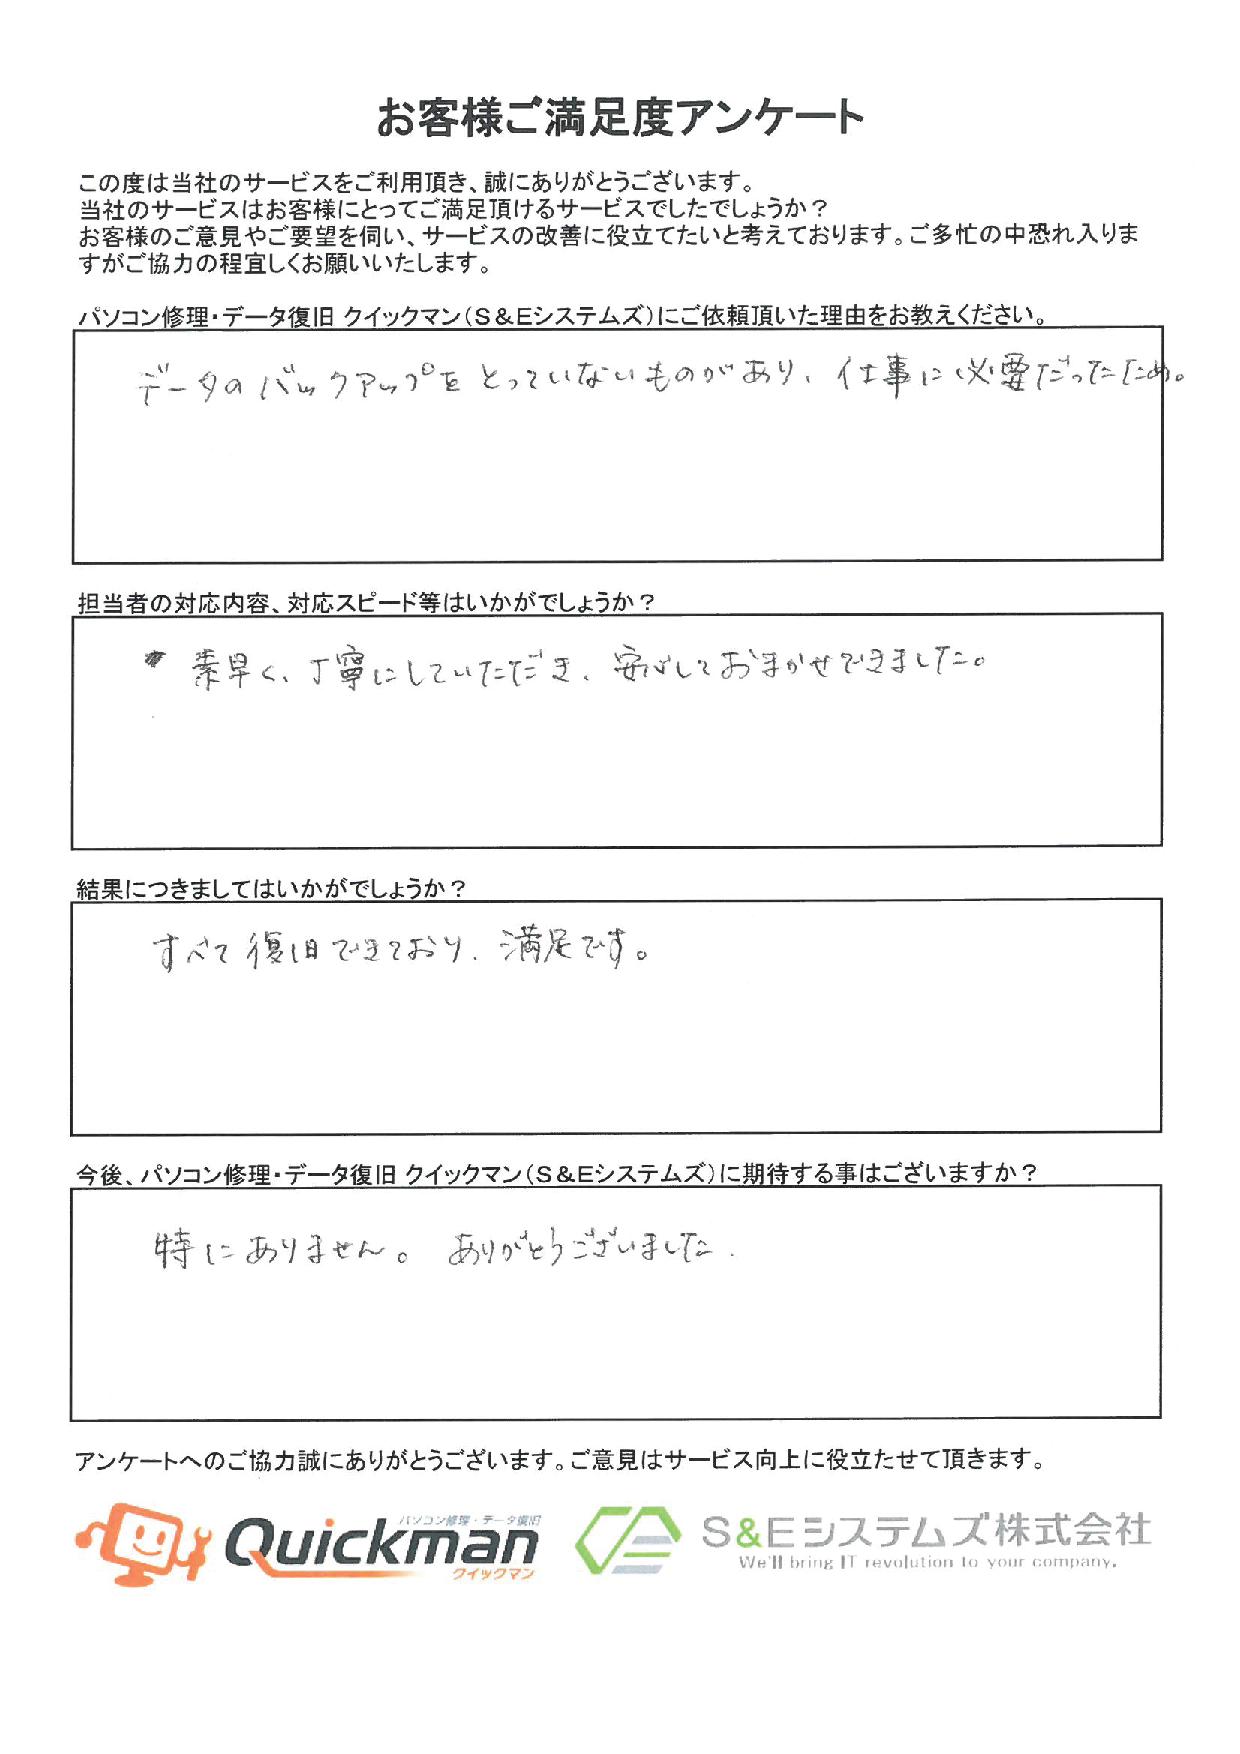 お客様ご満足度アンケート
この度は当社のサービスをご利用頂き、誠にありがとうございます。
当社のサービスはお客様にとってご満足頂けるサービスでしたでしょうか？
お客様のご意見やご要望を伺い、サービスの改善に役立てたいと考えております。ご多忙の中恐れ入りま
すがご協力の程宜しくお願いいたします。
パソコン修理・データ復旧 クイックマン（S＆Eシステムズ）にご依頼頂いた理由をお教えください。
データのバックアップをとっていないものがあり、仕事に必要だったため。
担当者の対応内容、対応スピード等はいかがでしょうか？
素早く、丁寧にしていただき、安心しておまかせできました。
結果につきましてはいかがでしょうか？
すべて復旧できており、満足です。
今後、パソコン修理・データ復旧 クイックマン（S＆Eシステムズ）に期待する事はございますか？
特にありません。 ありがとうございました.
アンケートへのご協力誠にありがとうございます。ご意見はサービス向上に役立たせて頂きます。
パソコン修理・データ復旧
Quickman
クイックマン
S&Eシステムズ株式会社
We'll bring IT revolution to your company.